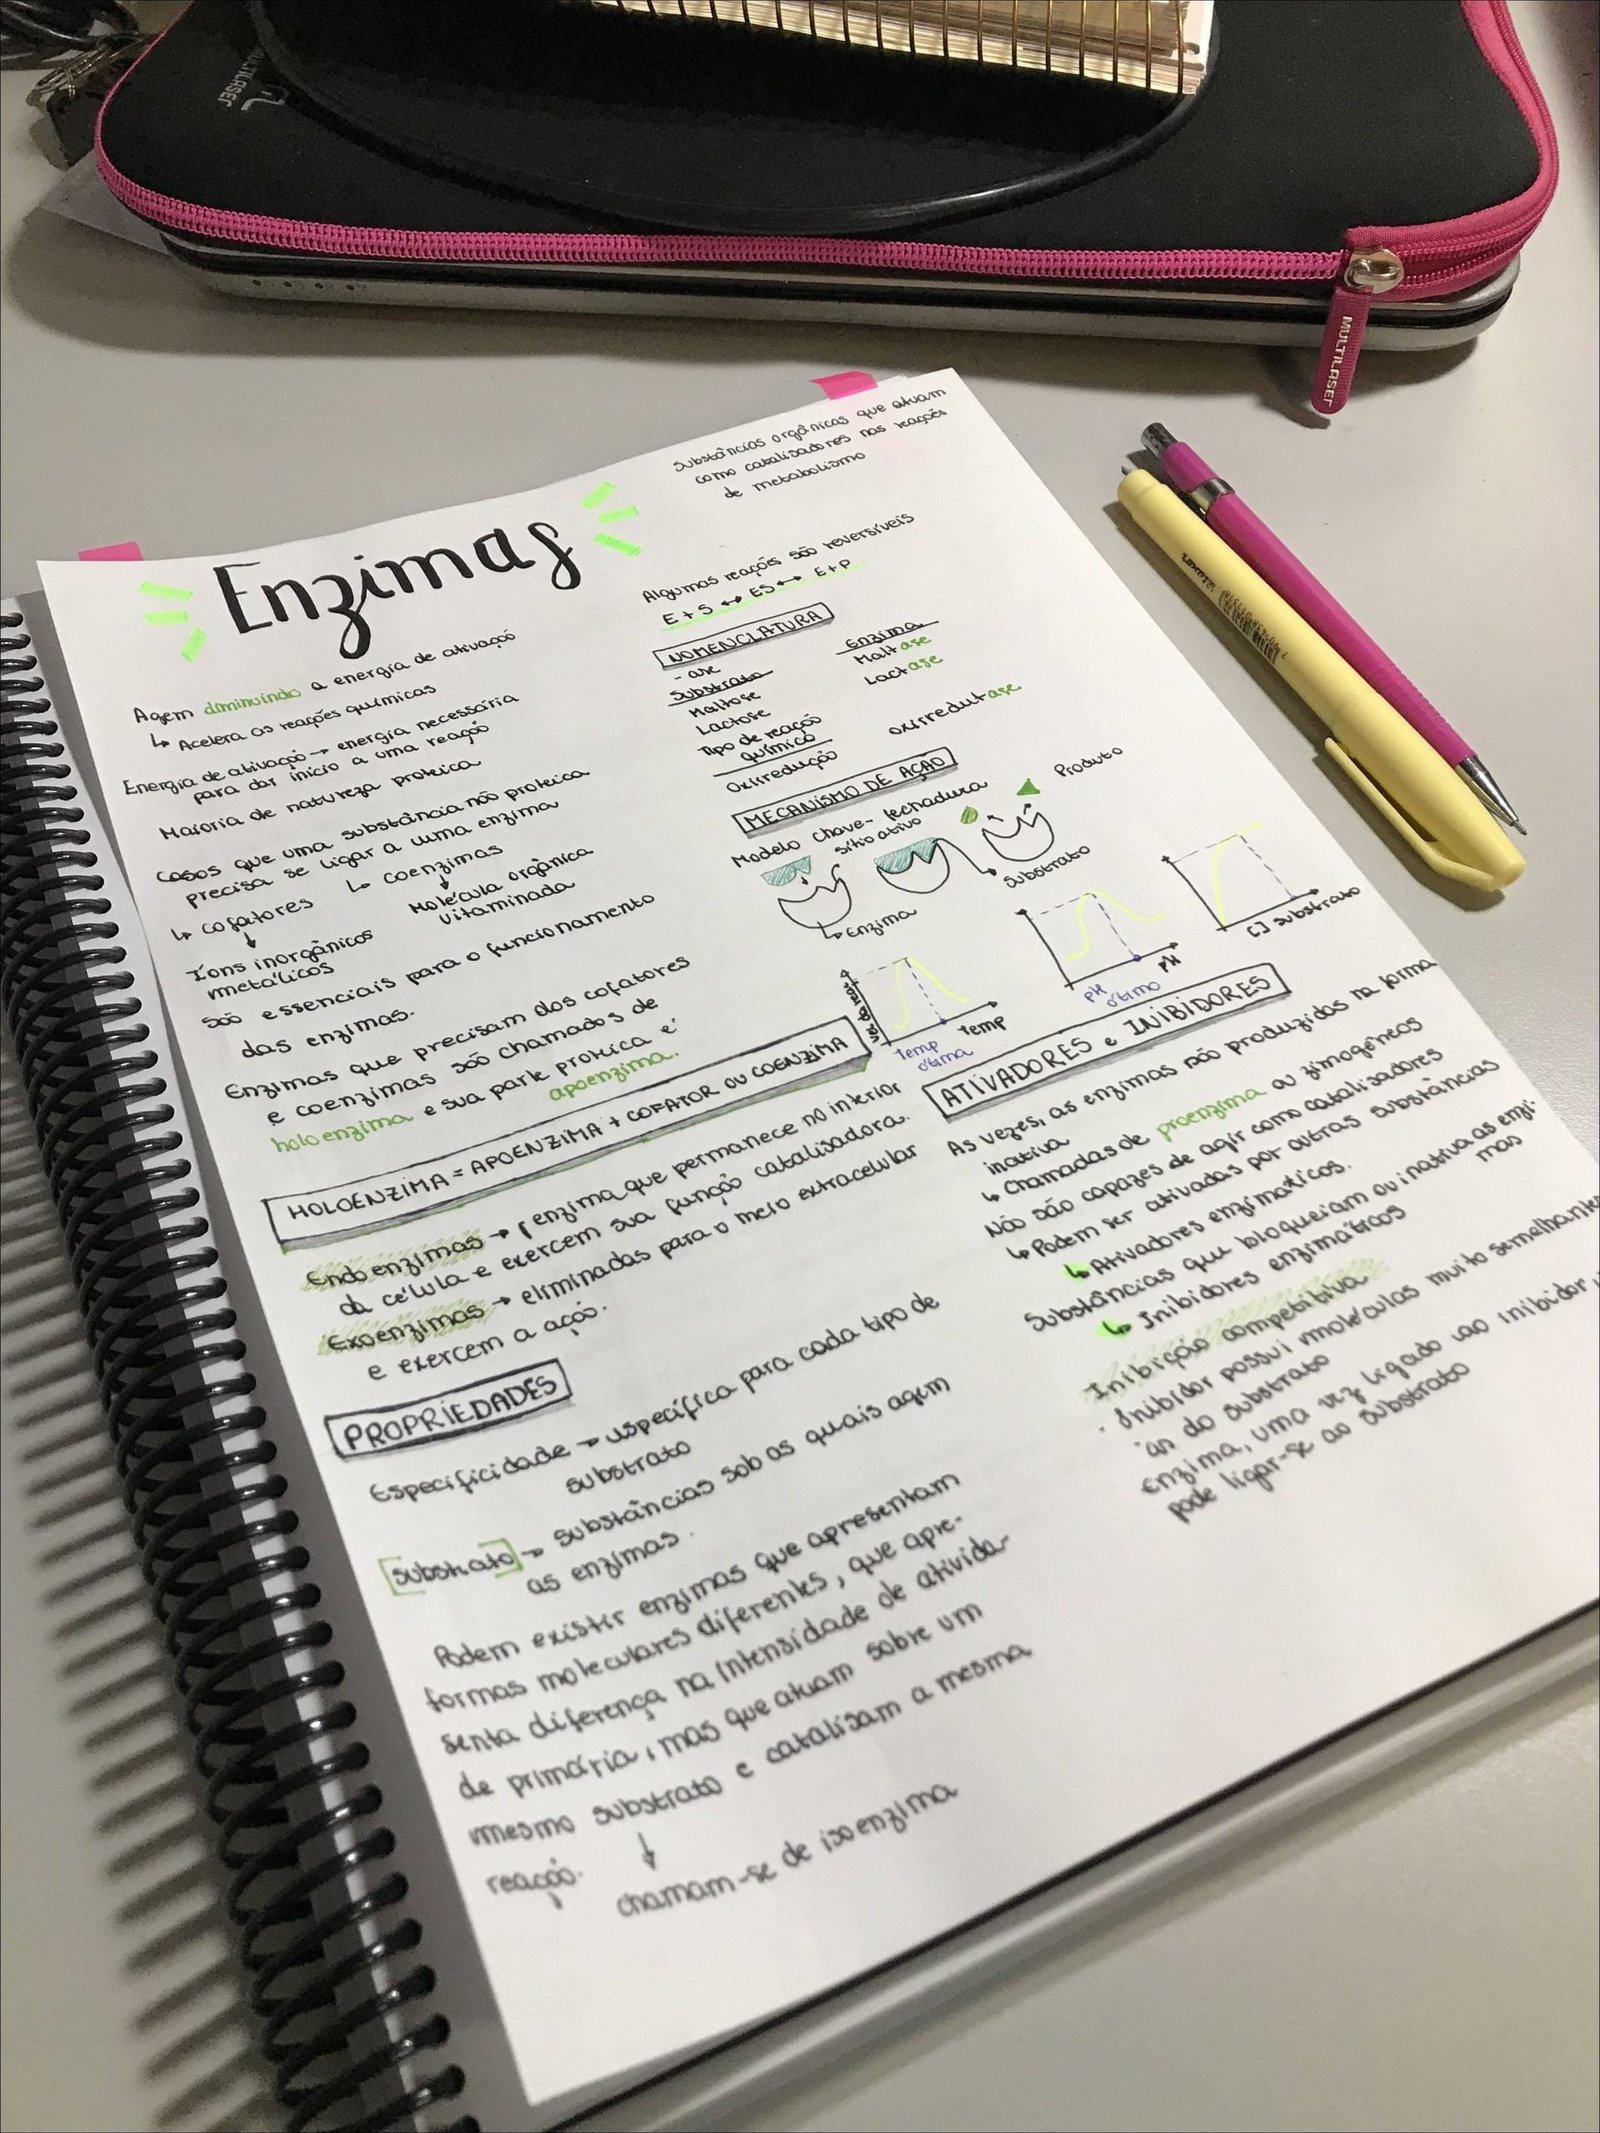 MULTILASER
MULTILASER
Enzimas
Agem diminuindo a energia de ativação
↳ Acelera as reações químicas
Energia de ativação → energia necessária
para dar início a uma reação
Maioria de natureza proteica
Casos que uma substância não proteica
precisa se ligar a uma enzima
↳ cofatores ↳ coenzimas
↓ ↓
Íons inorgânicos Molécula orgânica
metálicos vitaminada
são essenciais para o funcionamento
das enzimas.
Enzimas que precisam dos cofatores
e coenzimas são chamados de
holoenzima e sua parte proteica é
apoenzima.
HOLOENZIMA = APOENZIMA + COFATOR OU COENZIMA
Endoenzimas → enzima que permanece no interior
da célula e exercem sua função catalisadora.
Exoenzimas → eliminadas para o meio extracelular
e exercem a ação.
PROPRIEDADES
Especificidade → específica para cada tipo de
substrato
[substrato] → substâncias sob as quais agem
as enzimas.
Podem existir enzimas que apresentam
formas moleculares diferentes, que apre-
senta diferença na intensidade de ativida-
de primária, mas que atuam sobre um
mesmo substrato e catalisam a mesma
reação.
↓
chamam-se de isoenzima
Substâncias orgânicas que atuam
como catalisadores nas reações
de metabolismo
Algumas reações são reversíveis
E + S ↔ ES ↔ E + P
NOMENCLATURA
- ase
Substrato Enzima
Maltose Maltase
Lactose Lactase
Tipo de reação
química
Oxirredução oxirredutase
MECANISMO DE AÇÃO
Modelo chave-fechadura
sítio ativo
Produto
Substrato
Enzima
temp
Temp
ótima
pH
pH
ótimo
[] substrato
ATIVADORES e INIBIDORES
As vezes, as enzimas são produzidas na forma
inativa
↳ Chamadas de proenzima ou zimogêneos
Não são capazes de agir como catalisadores
↳ Podem ser ativadas por outras substâncias
↳ Ativadores enzimáticos.
Substâncias que bloqueiam ou inativa as enzi-
mas
↳ Inibidores enzimáticos
Inibição competitiva
· Inibidor possui moléculas muito semelhante
as do substrato
Enzima, uma vez ligado ao inibidor,
pode ligar-se ao substrato